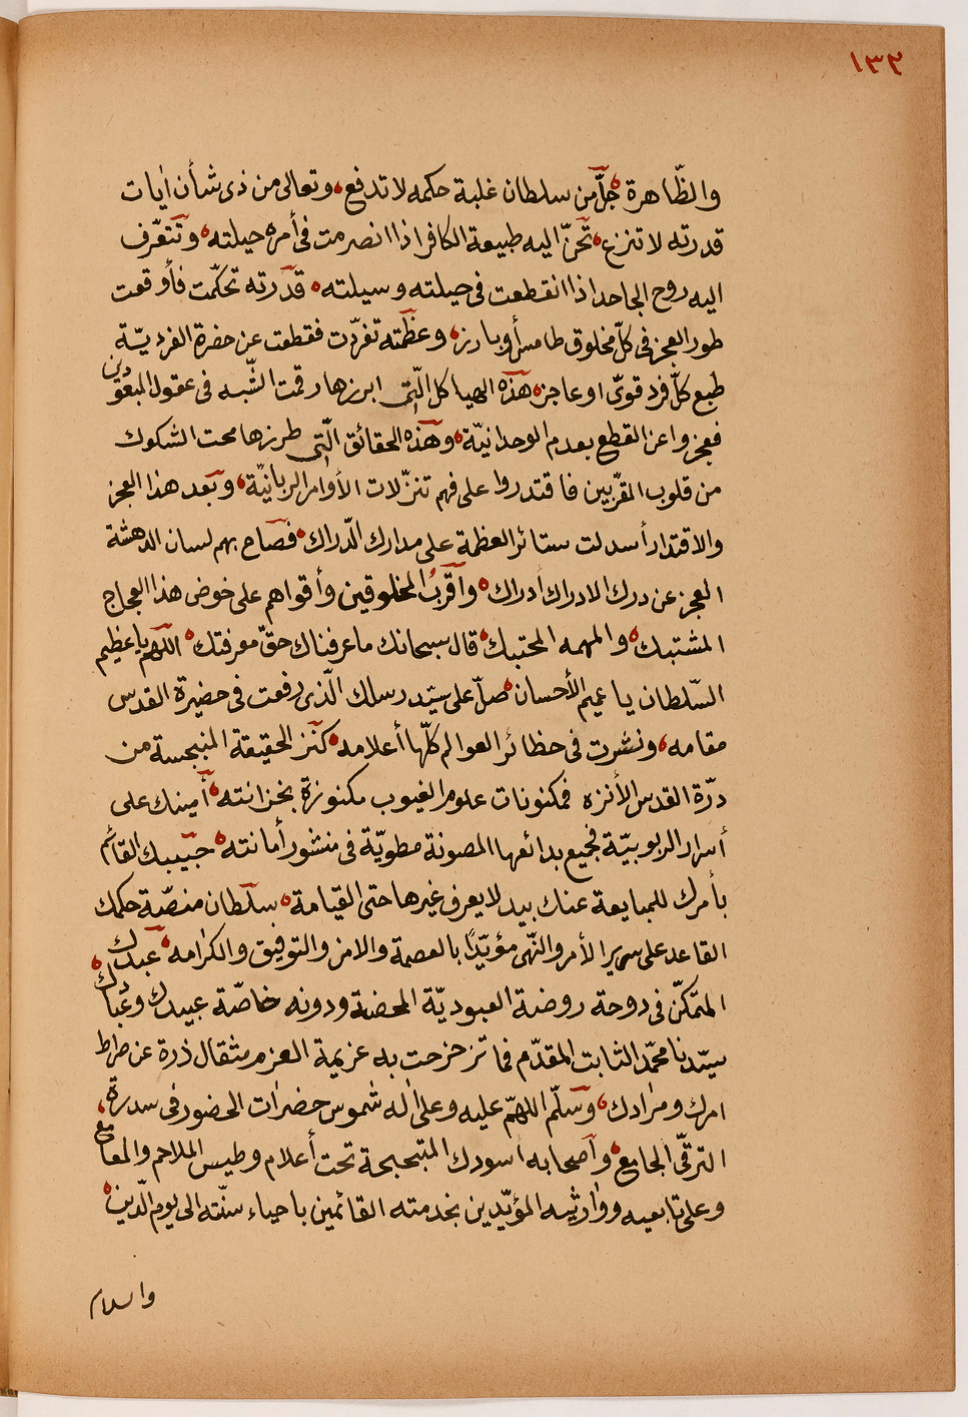 ١٣٢
والظّاهرة جلّ من سلطان غلبة حكمه لا تدفع وتعالى من ذى شأن اٰيات
قدرته لا تنزع تحنّ اليه طبيعة الكافر اذا انصرمت فى أمره حيلته وتتعّرف
اليه روح الجاحد اذا انقطعت فى حيلته وسيلته قدرته تحكّمت فأوقعت
طور العجز فى كلّ مخلوق طامس أو بارز وعظمته تفرّدت فقطعت عن حضرة الفرديّة
طبع كلّ فرد قوىّ او عاجز هذه الهياكل الّتى ابرزها رقمت الشّبه فى عقول المبعودين
فعجزوا عن القطع بعدم الوحدانيّة وهذه الحقائق الّتى طرزها محت الشكوك
من قلوب المقرّبين فاقتدروا على فهم تنزّلات الأوامر الربانيّة وبعد هذا العجز
والاقتدار أسدلت ستائر العظمة على مدارك الّدراك فصاح بهم لسان الدهشة
العجز عن درك الادراك ادراك وأقربُ المخلوقين وأقواهم على خوض هذا العجاج
المشتبك والمهمه المحتبك قال سبحانك ما عرفناك حقّ معرفتك اللهم يا عظيم
السّلطان يا عميم الأحسان صلّ على سيّد رسلك الّذى رفعت فى حضيرة القدس
مقامه ونشرت فى حظائر العوالم كلّها أعلامه كنز الحقيقة المنبجسة من
درّة القدس الأنزه فمكنونات علوم الغيوب مكنوزة بخزانته أمينك على
أسرار الربوبيّة فجميع بدائعها المصونة مطويّة فى منشور أمانته حبيبك القائم
بأمرك للمبايعة عنك بيد لا يعرف غيرها حتى القيامة سلطان منصّة حكمك
القاعد على سرير الأمر والنّهى مؤيّدًا بالعصمة والامن والتوفيق والكرٰامه عبدك
المتمكّن فى دوحة روضة العبوديّة المحضة ودونه خاصّة عبيدك وعبادك
سيّدنا محمّد الثابت المقدّم فما تزحزحت به عزيمة العزم مثقال ذرة عن صراط
امرك ومرٰادك وسلّم اللهمّ عليه وعلى اٰله شموس حضرٰات الحضور فى سدرة
الترقّى الجامع وأصحابه اسودك المتبحبحة تحت أعلام وطيس الملاحم والمعامع
وعلى تابعيه ووٰارثيه المؤيّدين بخدمته القائمين باحياء سنّته الى يوم الّدين
والسلام